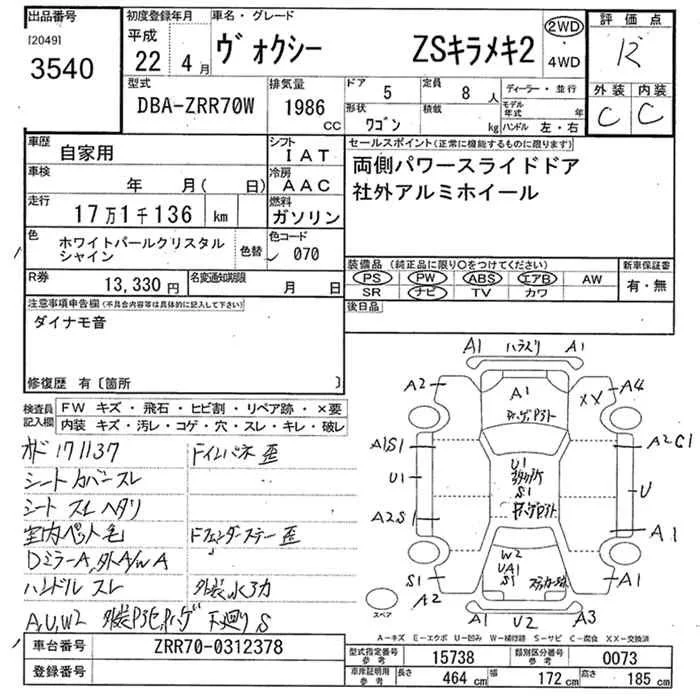 出品番号
[2049]
3540
初度登録年月
平成
22年 4月
車名・グレード
ヴォクシー ZSキラメキ2
2WD
・
4WD
評価点
R
外装 内装
C C
型式
DBA-ZRR70W
排気量
1986
CC
ドア 5
定員 8人
形状
ワゴン
積載
kg
ディーラー・並行
モデル年式 年
ハンドル 左・右
車歴
自家用
シフト
IAT
車検
年 月( 日)
冷房
AAC
走行
17万1千136 km
燃料
ガソリン
色
ホワイトパールクリスタル
シャイン
色替
色コード
070
R券
13,330円
名変通知期限
月 日
セールスポイント(正常に機能するものに限ります)
両側パワースライドドア
社外アルミホイール
装備品 (純正品に限り〇をつけてください)
PS PW ABS エアB AW
SR ナビ TV カワ
新車保証書
有・無
後日品
注意事項申告欄(不具合内容等は具体的に記入して下さい)
ダイナモ音
修復歴 有〔箇所 〕
検査員
記入欄
FW キズ・飛石・ヒビ割・リペア跡・×要
内装 キズ・汚レ・コゲ・穴・スレ・キレ・破レ
オド 171137
シートカバースレ
シート スレ ヘタリ
室内ペット毛
DミラーA,外A/W A
ハンドル スレ
A,U,W2
Fインパネ 歪
Fフェンダーステー 歪
下廻りS
A1 A1
A2 A1 XX A4
A1S1 A2C1
U1 U1 U
S1
A2S1 A1
W2
UA1
S1 S1 A1
A2
スペア
A1 U2 A3
A-キズ E-エクボ U-凹み W-補修跡 S-サビ C-腐食 XX-交換済
車台番号
ZRR70-0312378
登録番号
型式指定番号
参考
15738
類別区分番号
参考
0073
車庫証明用
参考
長さ 464 cm 幅 172 cm 高さ 185 cm